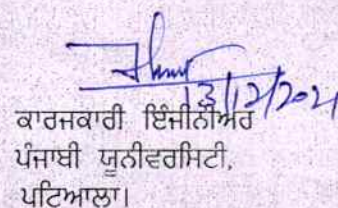 13/12/2021
ਕਾਰਜਕਾਰੀ ਇੰਜੀਨੀਅਰ
ਪੰਜਾਬੀ ਯੂਨੀਵਰਸਿਟੀ,
ਪਟਿਆਲਾ।